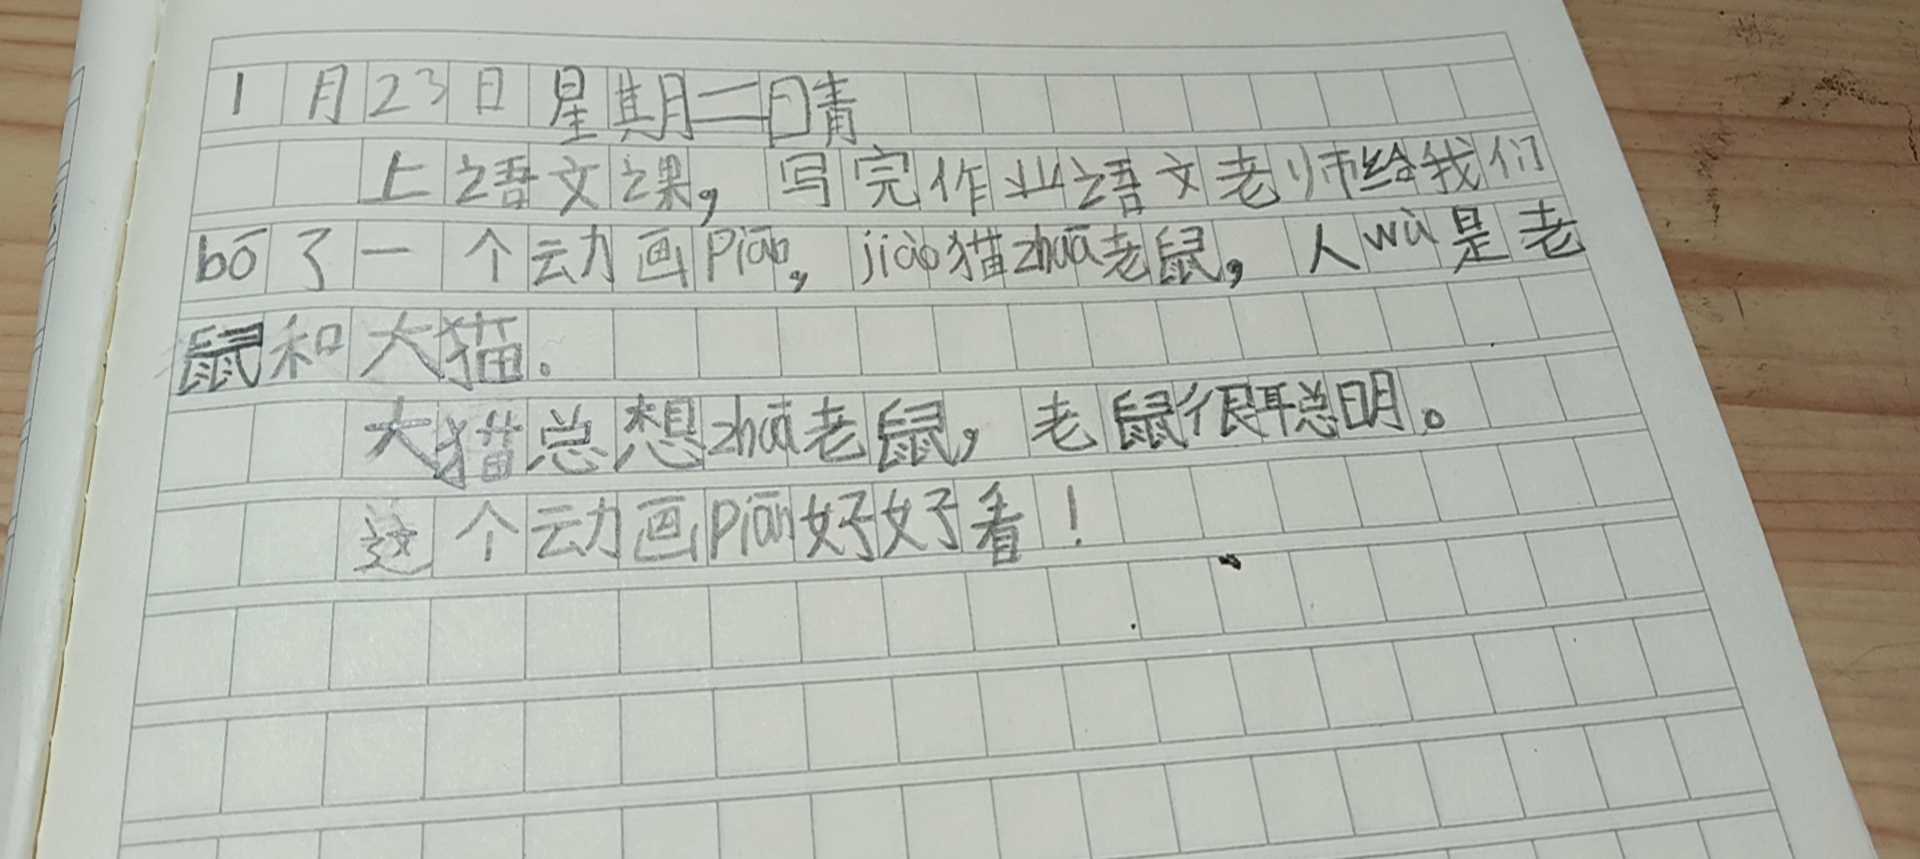 1月23日星期二晴
上语文课，写完作业语文老师给我们
bō了一个动画Piān，jiào猫zhuā老鼠，人wù是老
鼠和大猫.
大猫总想zhuā老鼠，老鼠很聪明。
这个动画piān好好看！